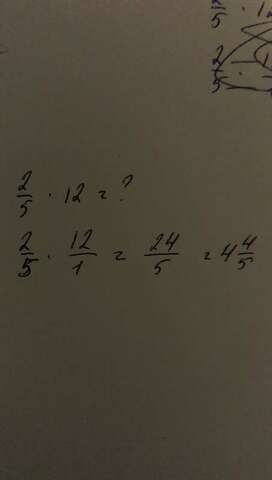 2/5 · 12
2/5 ·
2/5 · 12 = ?
2/5 · 12/1 = 24/5 = 4 4/5